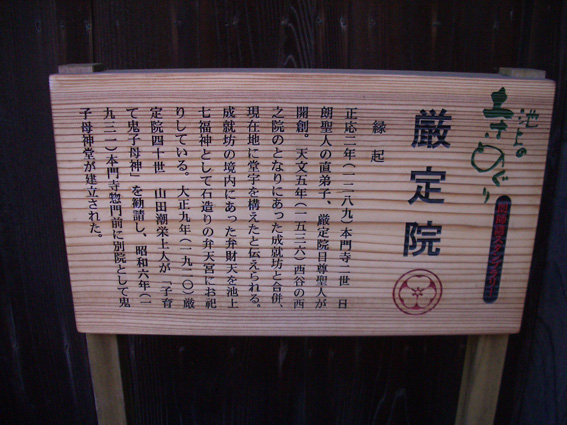 池上の
厳定院
縁起
正応二年（一二八九）本門寺二世　日
朗聖人の直弟子、厳定院日尊聖人が
開創。天文五年（一五三六）西谷の西
之院のとなりにあった成就坊と合併、
現在地に堂宇を構えたと伝えられる。
成就坊の境内にあった弁財天を池上
七福神として石造りの弁天宮にお祀
りしている。大正九年（一九二〇）厳
定院四十世　山田潮栄上人が「子育
て鬼子母神」を勧請し、昭和六年（一
九三一）本門寺惣門前に別院として鬼
子母神堂が建立された。